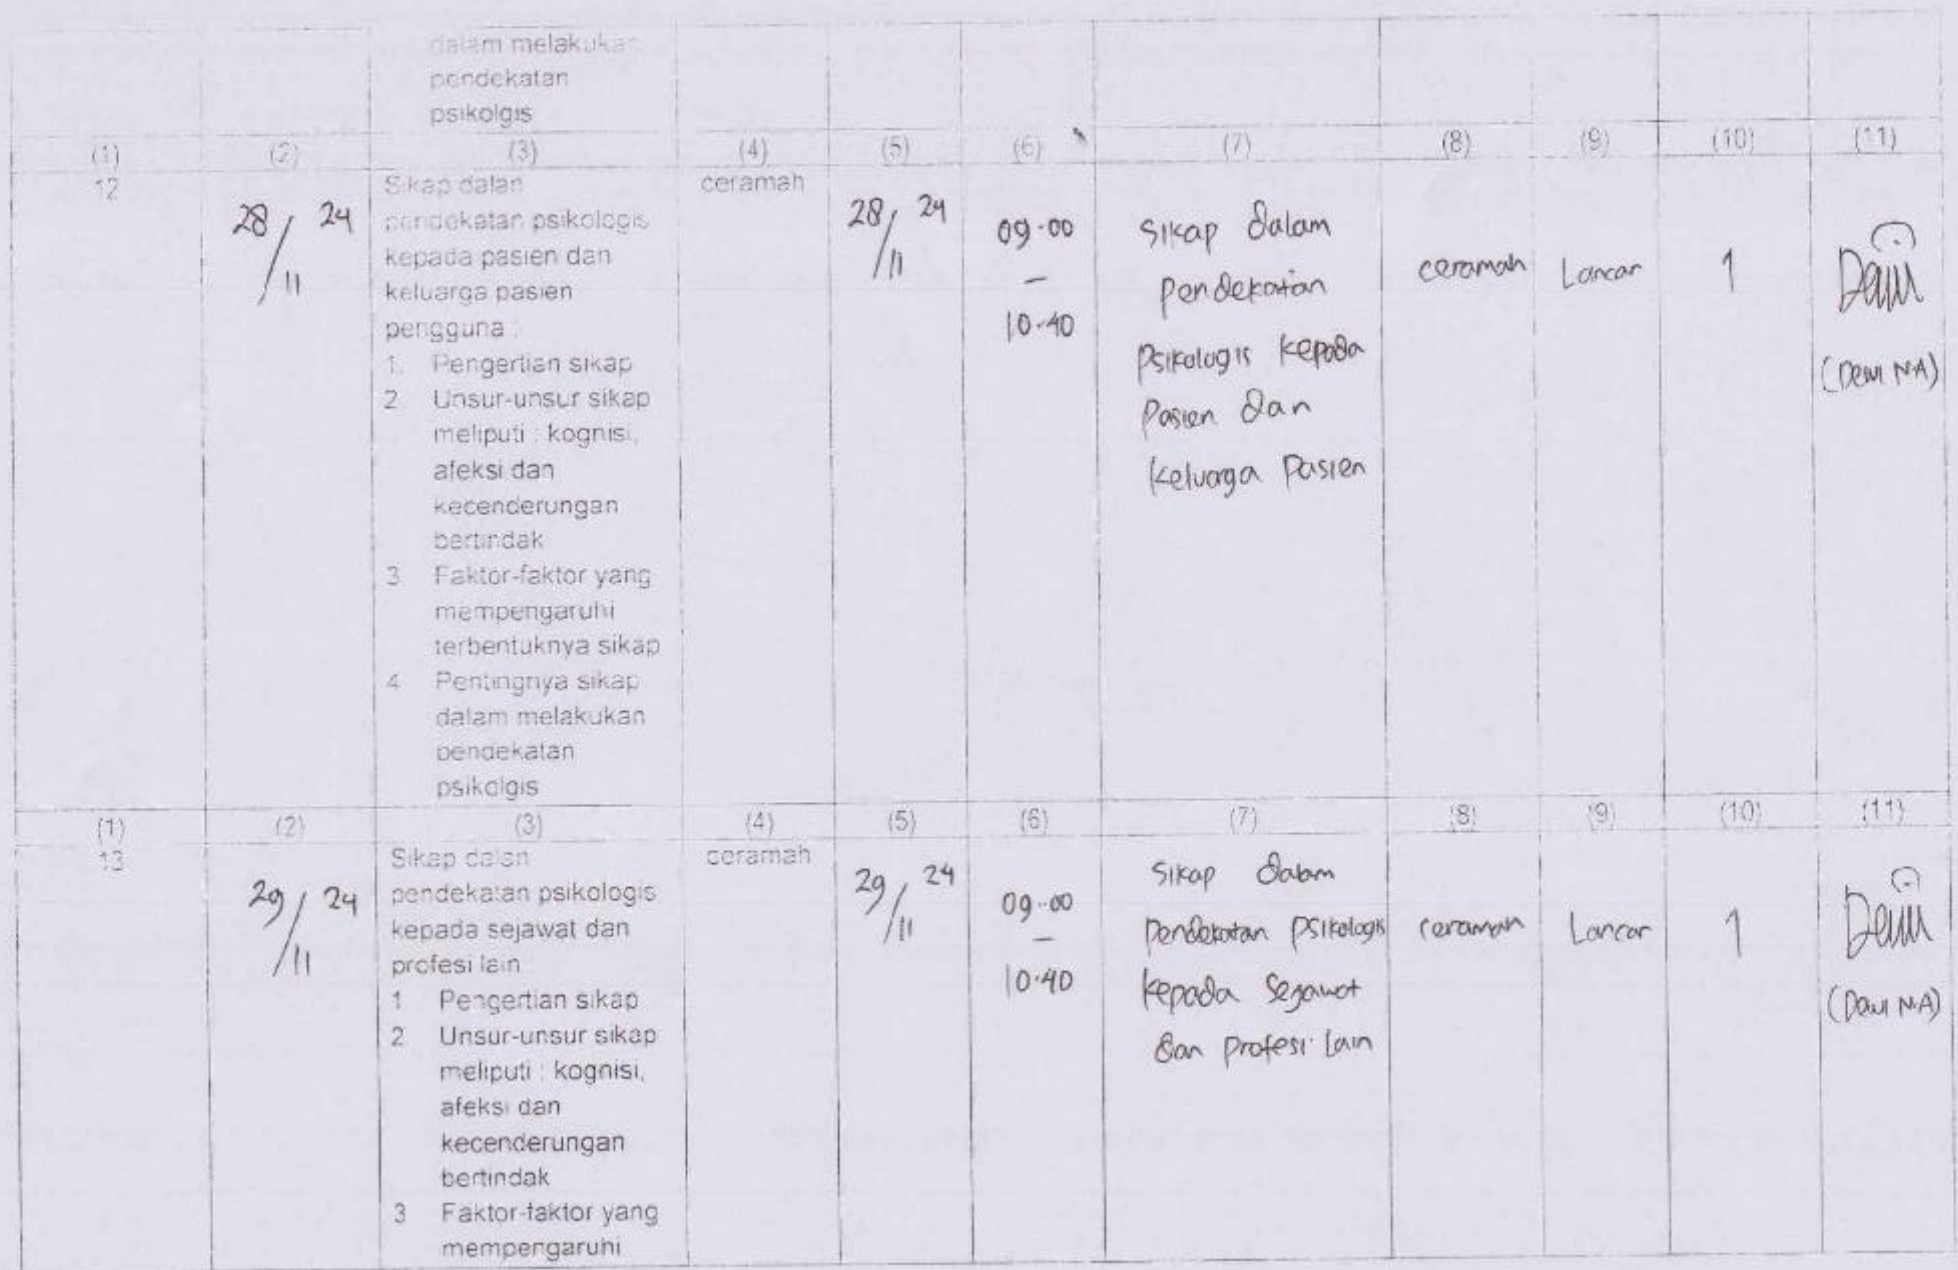 dalam melakukan
pendekatan
psikolgis
(1) (2) (3) (4) (5) (6) (7) (8) (9) (10) (11)
12
28/11 24
Sikap dalan
pendekatan psikologis
kepada pasien dan
keluarga pasien
pengguna :
1. Pengertian sikap
2 Unsur-unsur sikap
meliputi : kognisi,
afeksi dan
kecenderungan
bertindak
3 Faktor-faktor yang
mempengaruhi
terbentuknya sikap
4 Pentingnya sikap
dalam melakukan
pendekatan
psikolgis
ceramah
28/11 24
09.00
–
10.40
Sikap dalam
pendekatan
psikologis kepada
Pasien dan
keluarga Pasien
ceramah
Lancar
1
(Dewi N.A)
(1) (2) (3) (4) (5) (6) (7) (8) (9) (10) (11)
13
29/11 24
Sikap dalan
pendekatan psikologis
kepada sejawat dan
profesi lain
1 Pengertian sikap
2 Unsur-unsur sikap
meliputi : kognisi,
afeksi dan
kecenderungan
bertindak
3 Faktor-faktor yang
mempengaruhi
ceramah
29/11 24
09.00
–
10.40
Sikap dalam
pendekatan psikologis
kepada sejawat
dan profesi lain
ceramah
Lancar
1
(Dewi N.A)